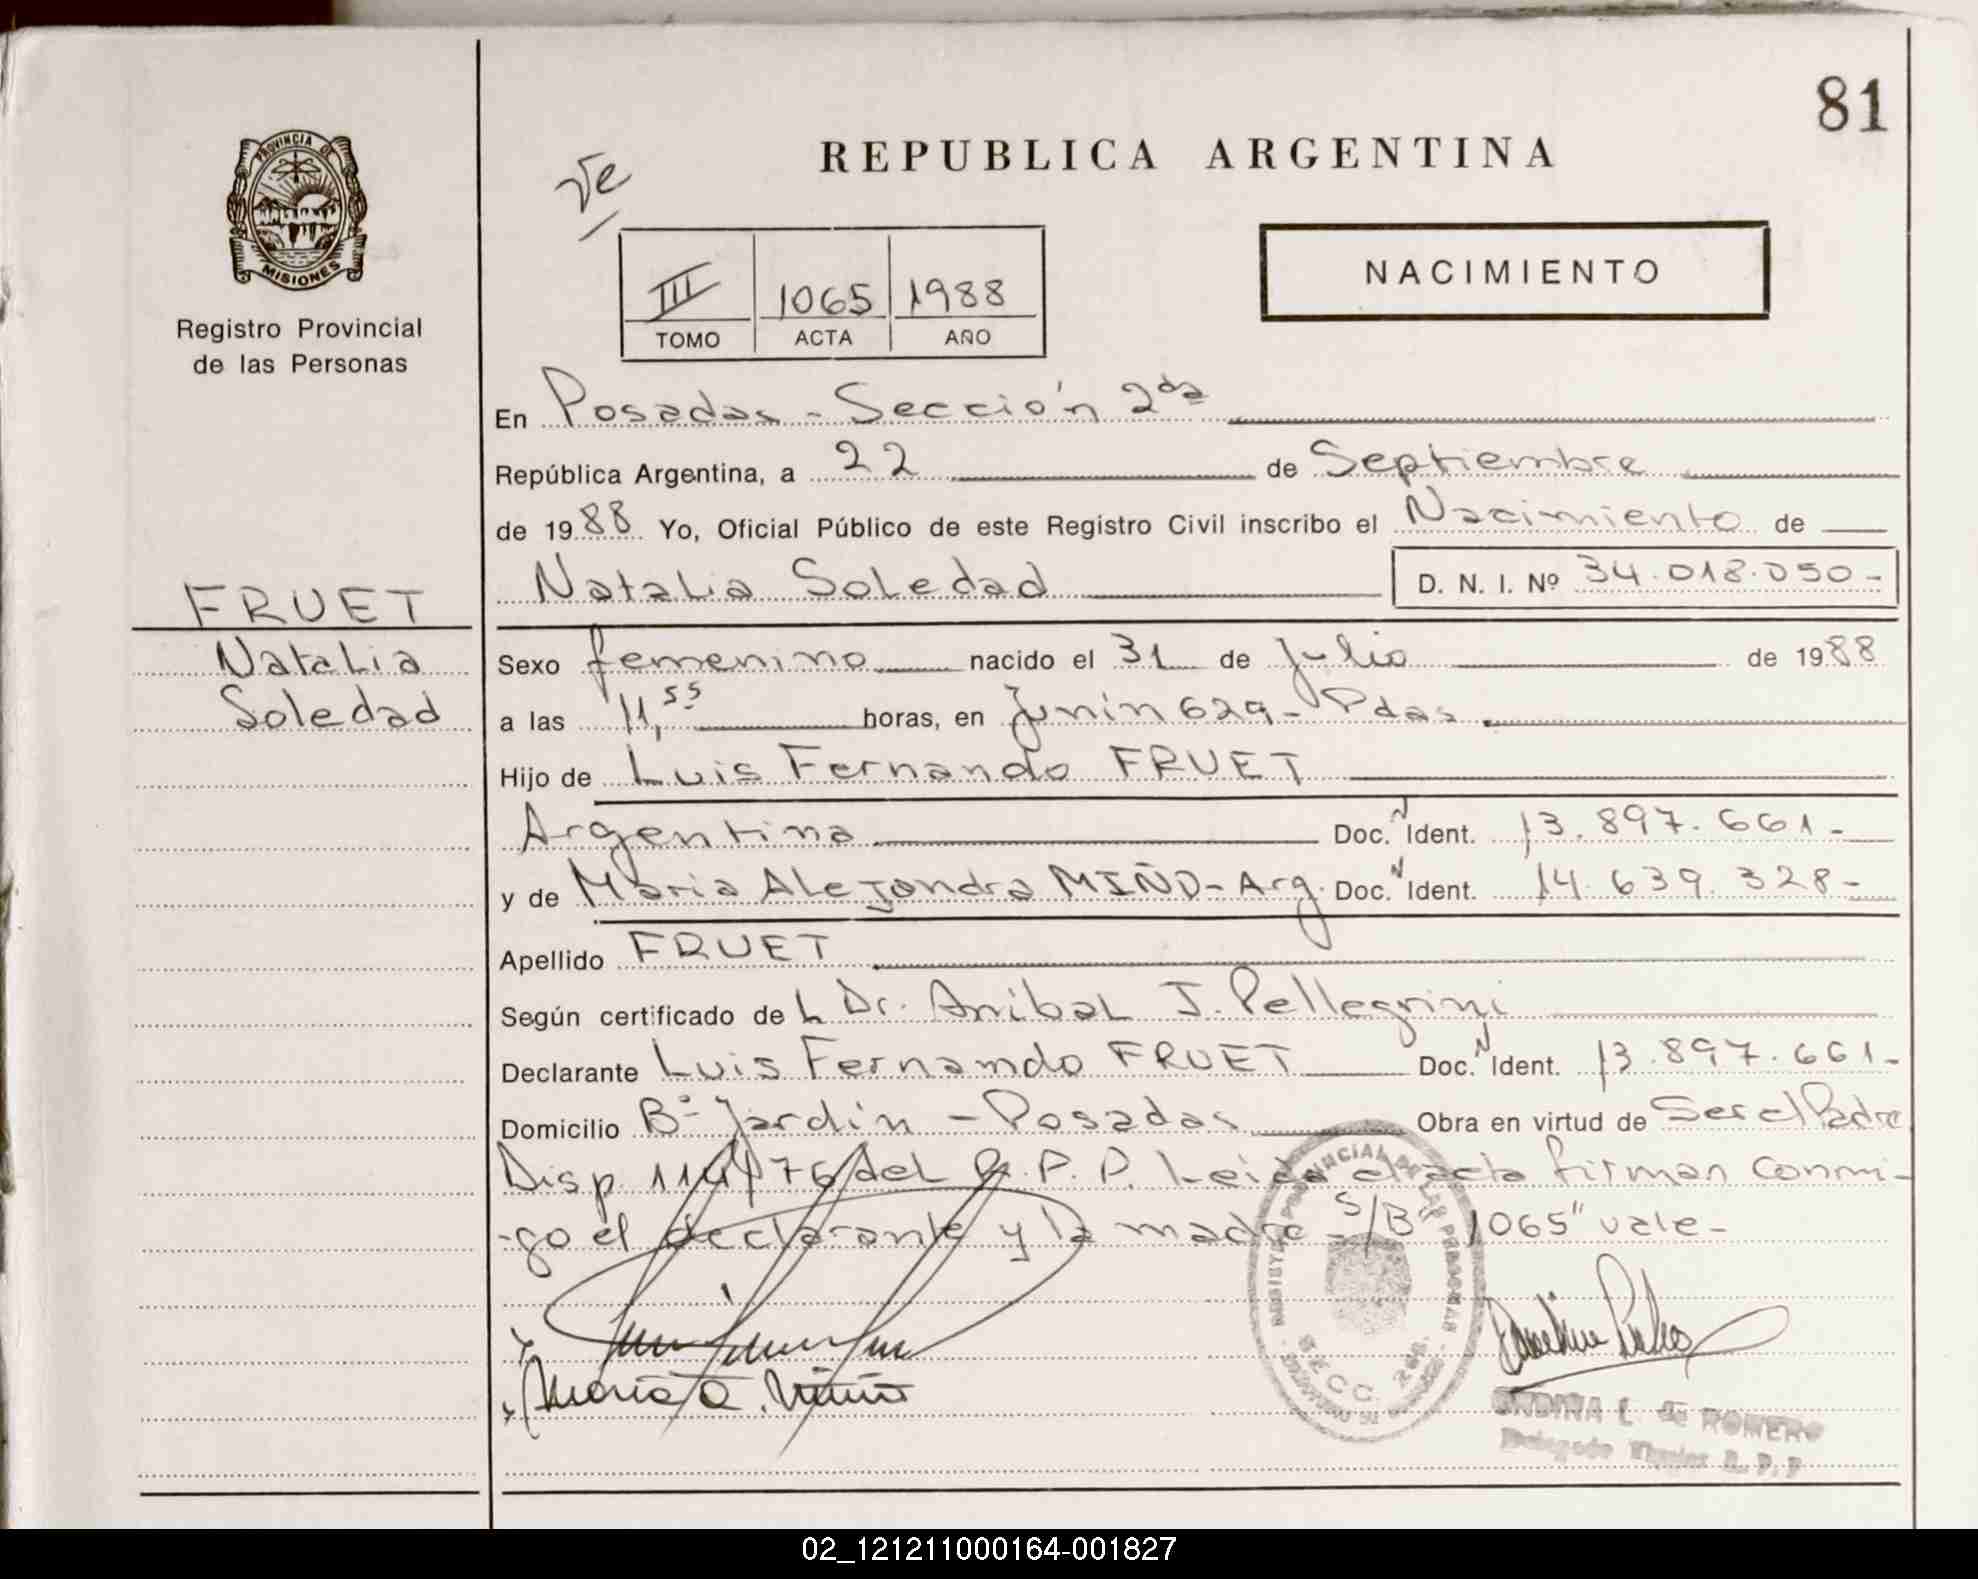 81
REPUBLICA ARGENTINA
PROVINCIA DE
MISIONES
Registro Provincial
de las Personas
NACIMIENTO
III 1065 1988
TOMO ACTA AÑO
En Posadas - Sección 2da
República Argentina, a 22 de Septiembre
de 1988 Yo, Oficial Público de este Registro Civil inscribo el Nacimiento de
Natalia Soledad D. N. I. Nº 34.018.050-
FRUET
Natalia
Soledad
Sexo femenino nacido el 31 de Julio de 1988
a las 11,55 horas, en Junín 629- Pdas
Hijo de Luis Fernando FRUET
Argentina Doc. N Ident. 13.897.661-
y de Maria Alejandra MIÑO- Arg. Doc. N Ident. 14.639.328-
Apellido FRUET
Según certificado de L Dr. Aníbal J. Pellegrini
Declarante Luis Fernando FRUET Doc. N Ident. 13.897.661-
Domicilio Bº Jardín - Posadas Obra en virtud de Ser el Padre
Disp. 114/76 del R.P.P. Leida el acta firman conmi-
-go el declarante y la madre S/B "1065" vale-
Maria A. Miño
SECC. 2da.
ONDINA L. de ROMERO
Delegada Titular R. P. P
02_121211000164-001827